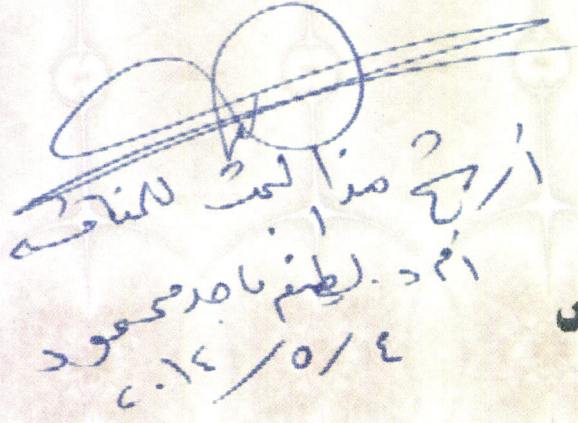 أرشح هذا البحث للمناقشة
أ.م.د. لطيفة ماجد محمود
٤/٥/٢٠١٤